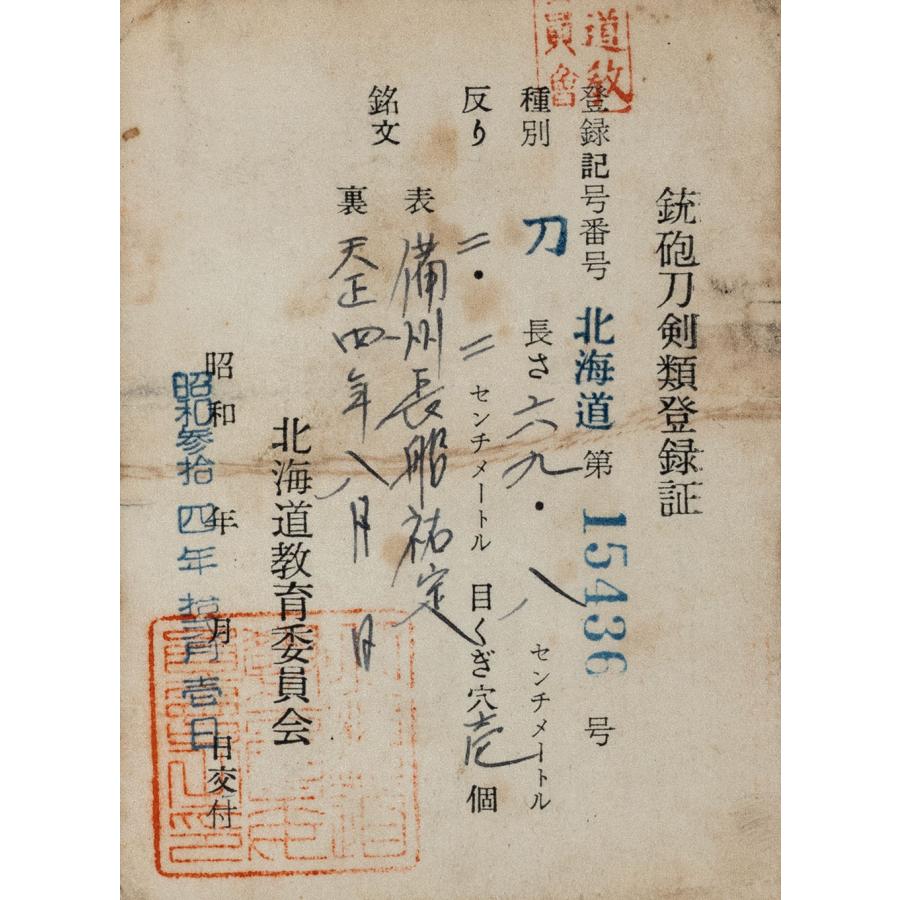 道教
員會
銃砲刀剣類登録証
登録記号番号 北海道 第 15436 号
種別 刀 長さ 六九・八 センチメートル
反り 二・二 センチメートル 目くぎ穴 壱 個
銘文 表 備州長船祐定
裏 天正四年八月 日
北海道教育委員会
昭和 年 月 日交付
昭和参拾四年拾弐月壱日